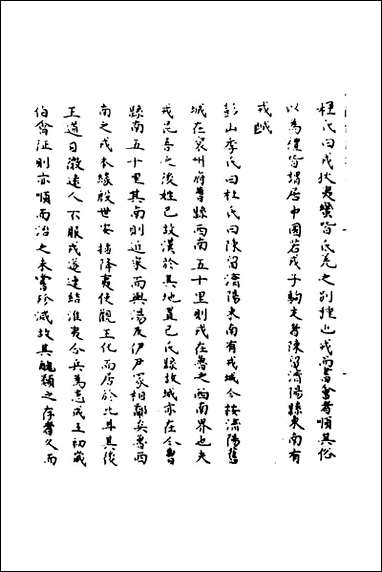 杜氏曰戎狄夷蠻皆氐羌之別種也戎而書會者順其俗
以為禮皆謂居中國若戎子駒支者陳留濟陽縣東南有
戎城
彭山李氏曰杜氏曰陳留濟陽東南有戎城今按濟陽舊
城在兗州府曹縣西南五十里則戎在魯之西南界也夫
戎昆吾之後姓己故漢於其地置己氏縣故城亦在今曹
縣南五十里其南則近宋而與湯及伊尹冢相鄰矣魯西
南之戎本緣殷世安揷降夷使觀王化而居於此耳其後
王道日微遠人不服戎遂連結淮夷合兵為患成王初歲
伯禽征則亦順而治之未嘗殄滅故其醜類之存者久而